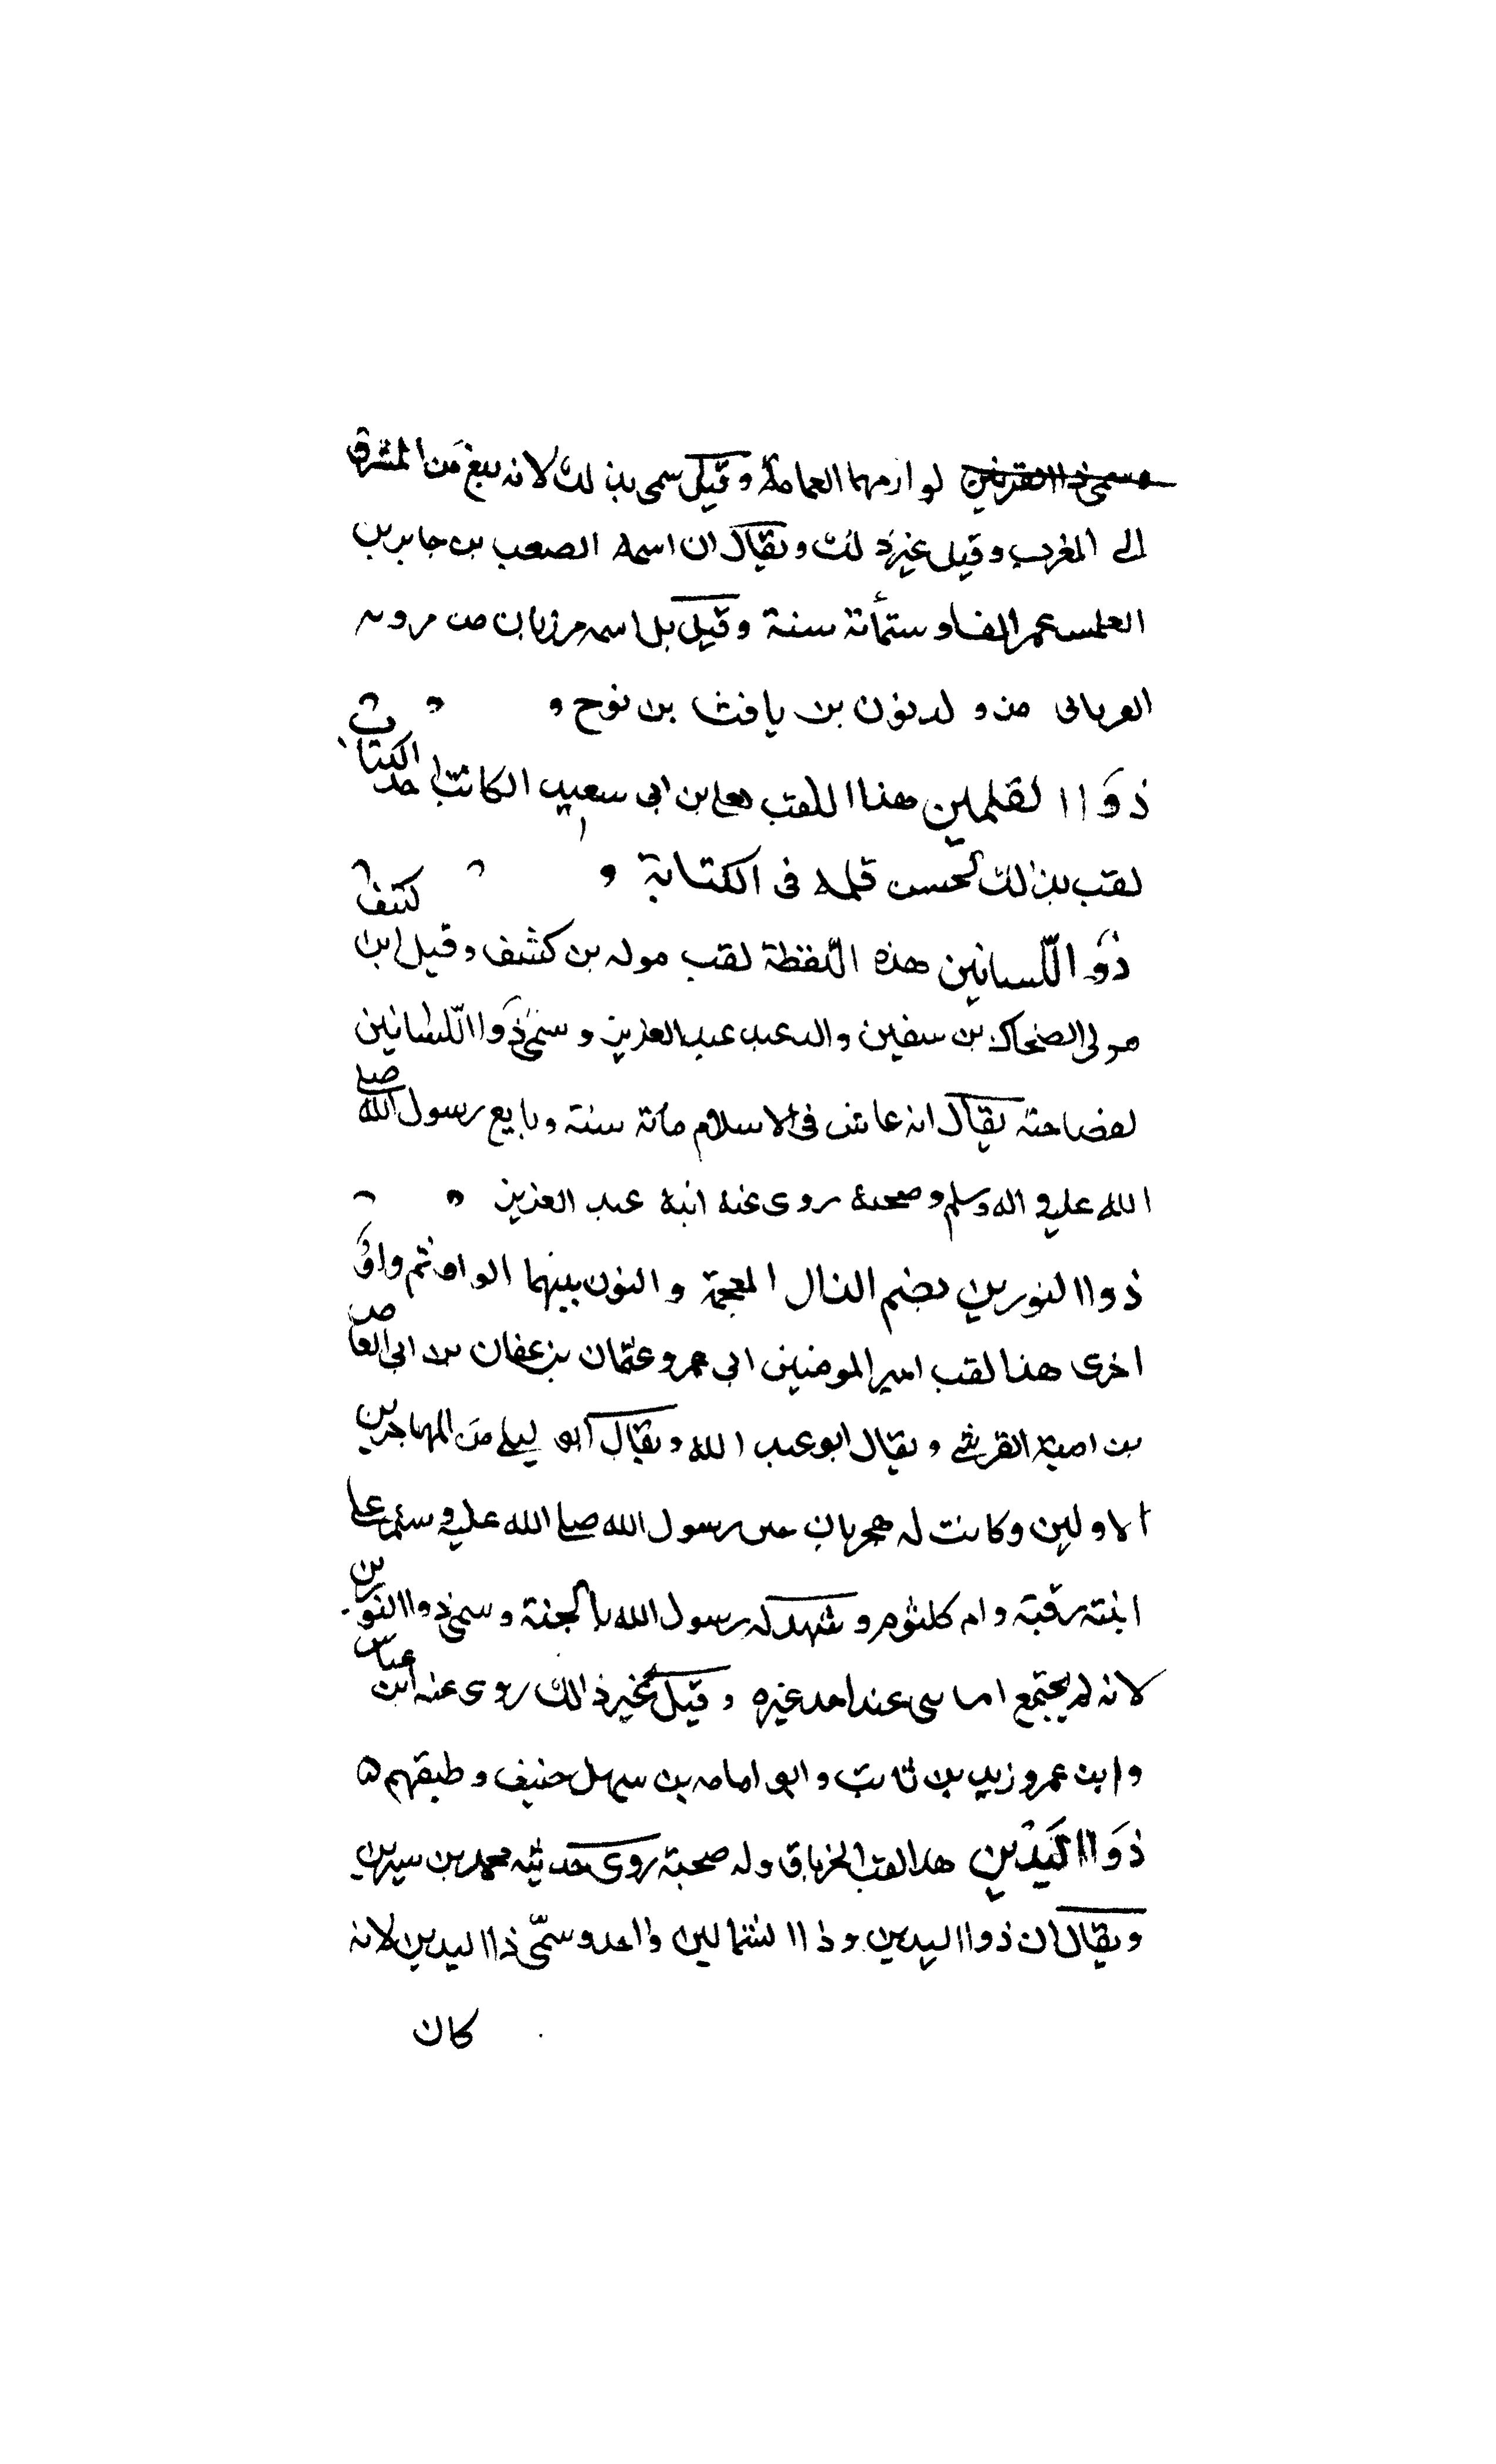 وسمى ذا القرنين لو ارمهما العمامة وقيل سمى بذلك لانه بلغ من المشرق
الى المغرب وقيل غير ذلك ويقال ان اسمه الصعب بن جابر بن
العلمس عمر الفا وستمأئة سنة وقيل بل اسمه مرزبان من مرويه
العربانى من ولد نون بن يافث بن نوح
ذوا القلمين هذا اللقب لعلى بن ابى سعيد الكاتب احد الكتاب
لقب بذلك لحسن قلمه فى الكتابة
ذو اللسانين هذه اللفظة لقب موله بن كشف وقيل ابن كثف
مولى الضحاك بن سفين والد عبد عبد العزيز وسمى ذوا اللسانين
لفصاحته يقال انه عاش فى الاسلام مائة سنة وبايع رسول الله صلى
الله عليه واله وسلم وصحبه روى عنه ابنه عبد العزيز
ذوا النورين بضم الذال المعجمة والنون بينهما الواو ثم واو
اخرى هذا لقب امير المومنين ابى عمرو عثمان بن عفان بن ابى العاص
بن امية القرشى ويقال ابو عبد الله ويقال ابو ليلى من المهاجرين
الاولين وكانت له هجرتان رسول الله صلى الله عليه وسلم على
ابنته رقية وام كلثوم وشهد له رسول الله بالجنة وسمى ذوا النورين
لانه لم يجتمع عند احد غيره وقيل لخير ذالك روى عنه ابن عباس
وابن عمر وزيد بن ثابت وابو امامه بن سهل حنيف وطبقهم ه
ذوا اليدين هذا لقب الخرباق وله صحبة روى حديثه محمد بن سيرين
ويقال ان ذوا اليدين وذا الشمالين واحد وسمّى ذا اليدين لانه
كان